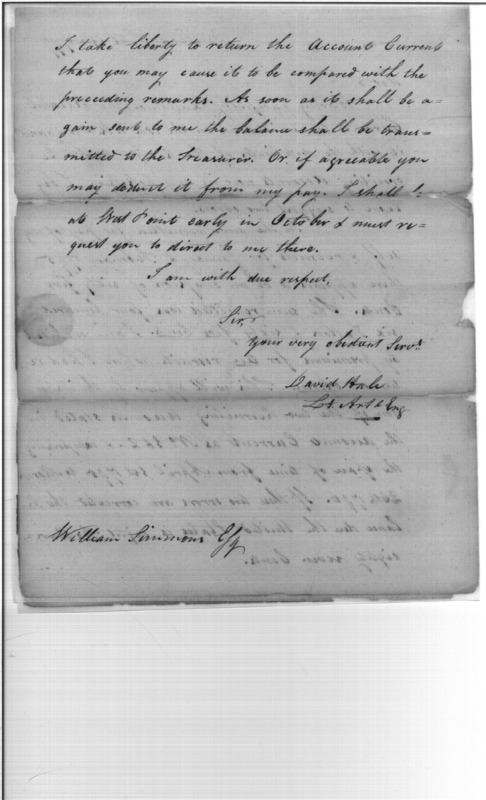 I take liberty to return the Account Current
that you may cause it to be compared with the
preceeding remarks. As soon as it shall be a=
gain sent to me the balance shall be trans=
mitted to the Treasurer. Or, if agreeable you
may deduct it from my pay. I shall be
at West Point early in October & must re=
quest you to direct to me there.
I am with due respect,
Sir,
Your very obedient Servt.
David Hale
Lt. Art & Eng
William Simmons Esq